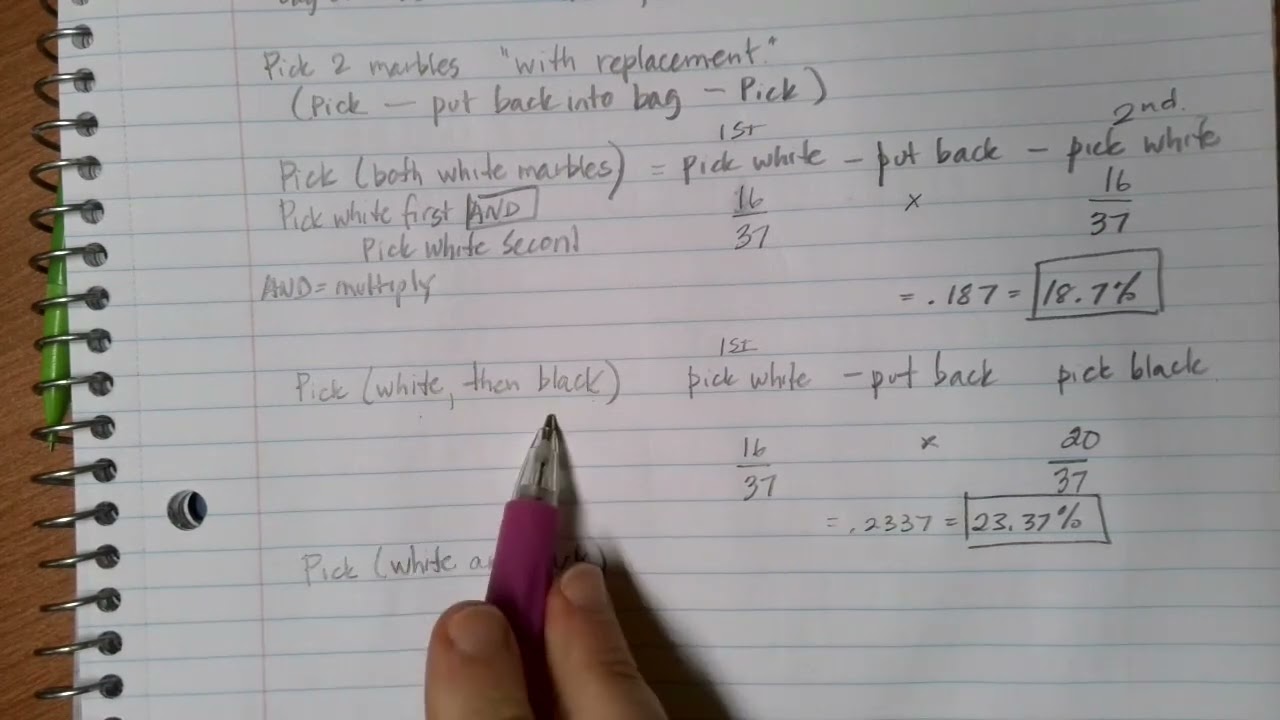 Pick 2 marbles "with replacement."
(Pick — put back into bag — Pick)
1st 2nd.
Pick (both white marbles) = pick white — put back — pick white
Pick white first AND 16/37 × 16/37
Pick white second
AND = multiply
= .187 = 18.7%
1st
Pick (white, then black) pick white — put back pick black
16/37 × 20/37
= .2337 = 23.37%
Pick (white